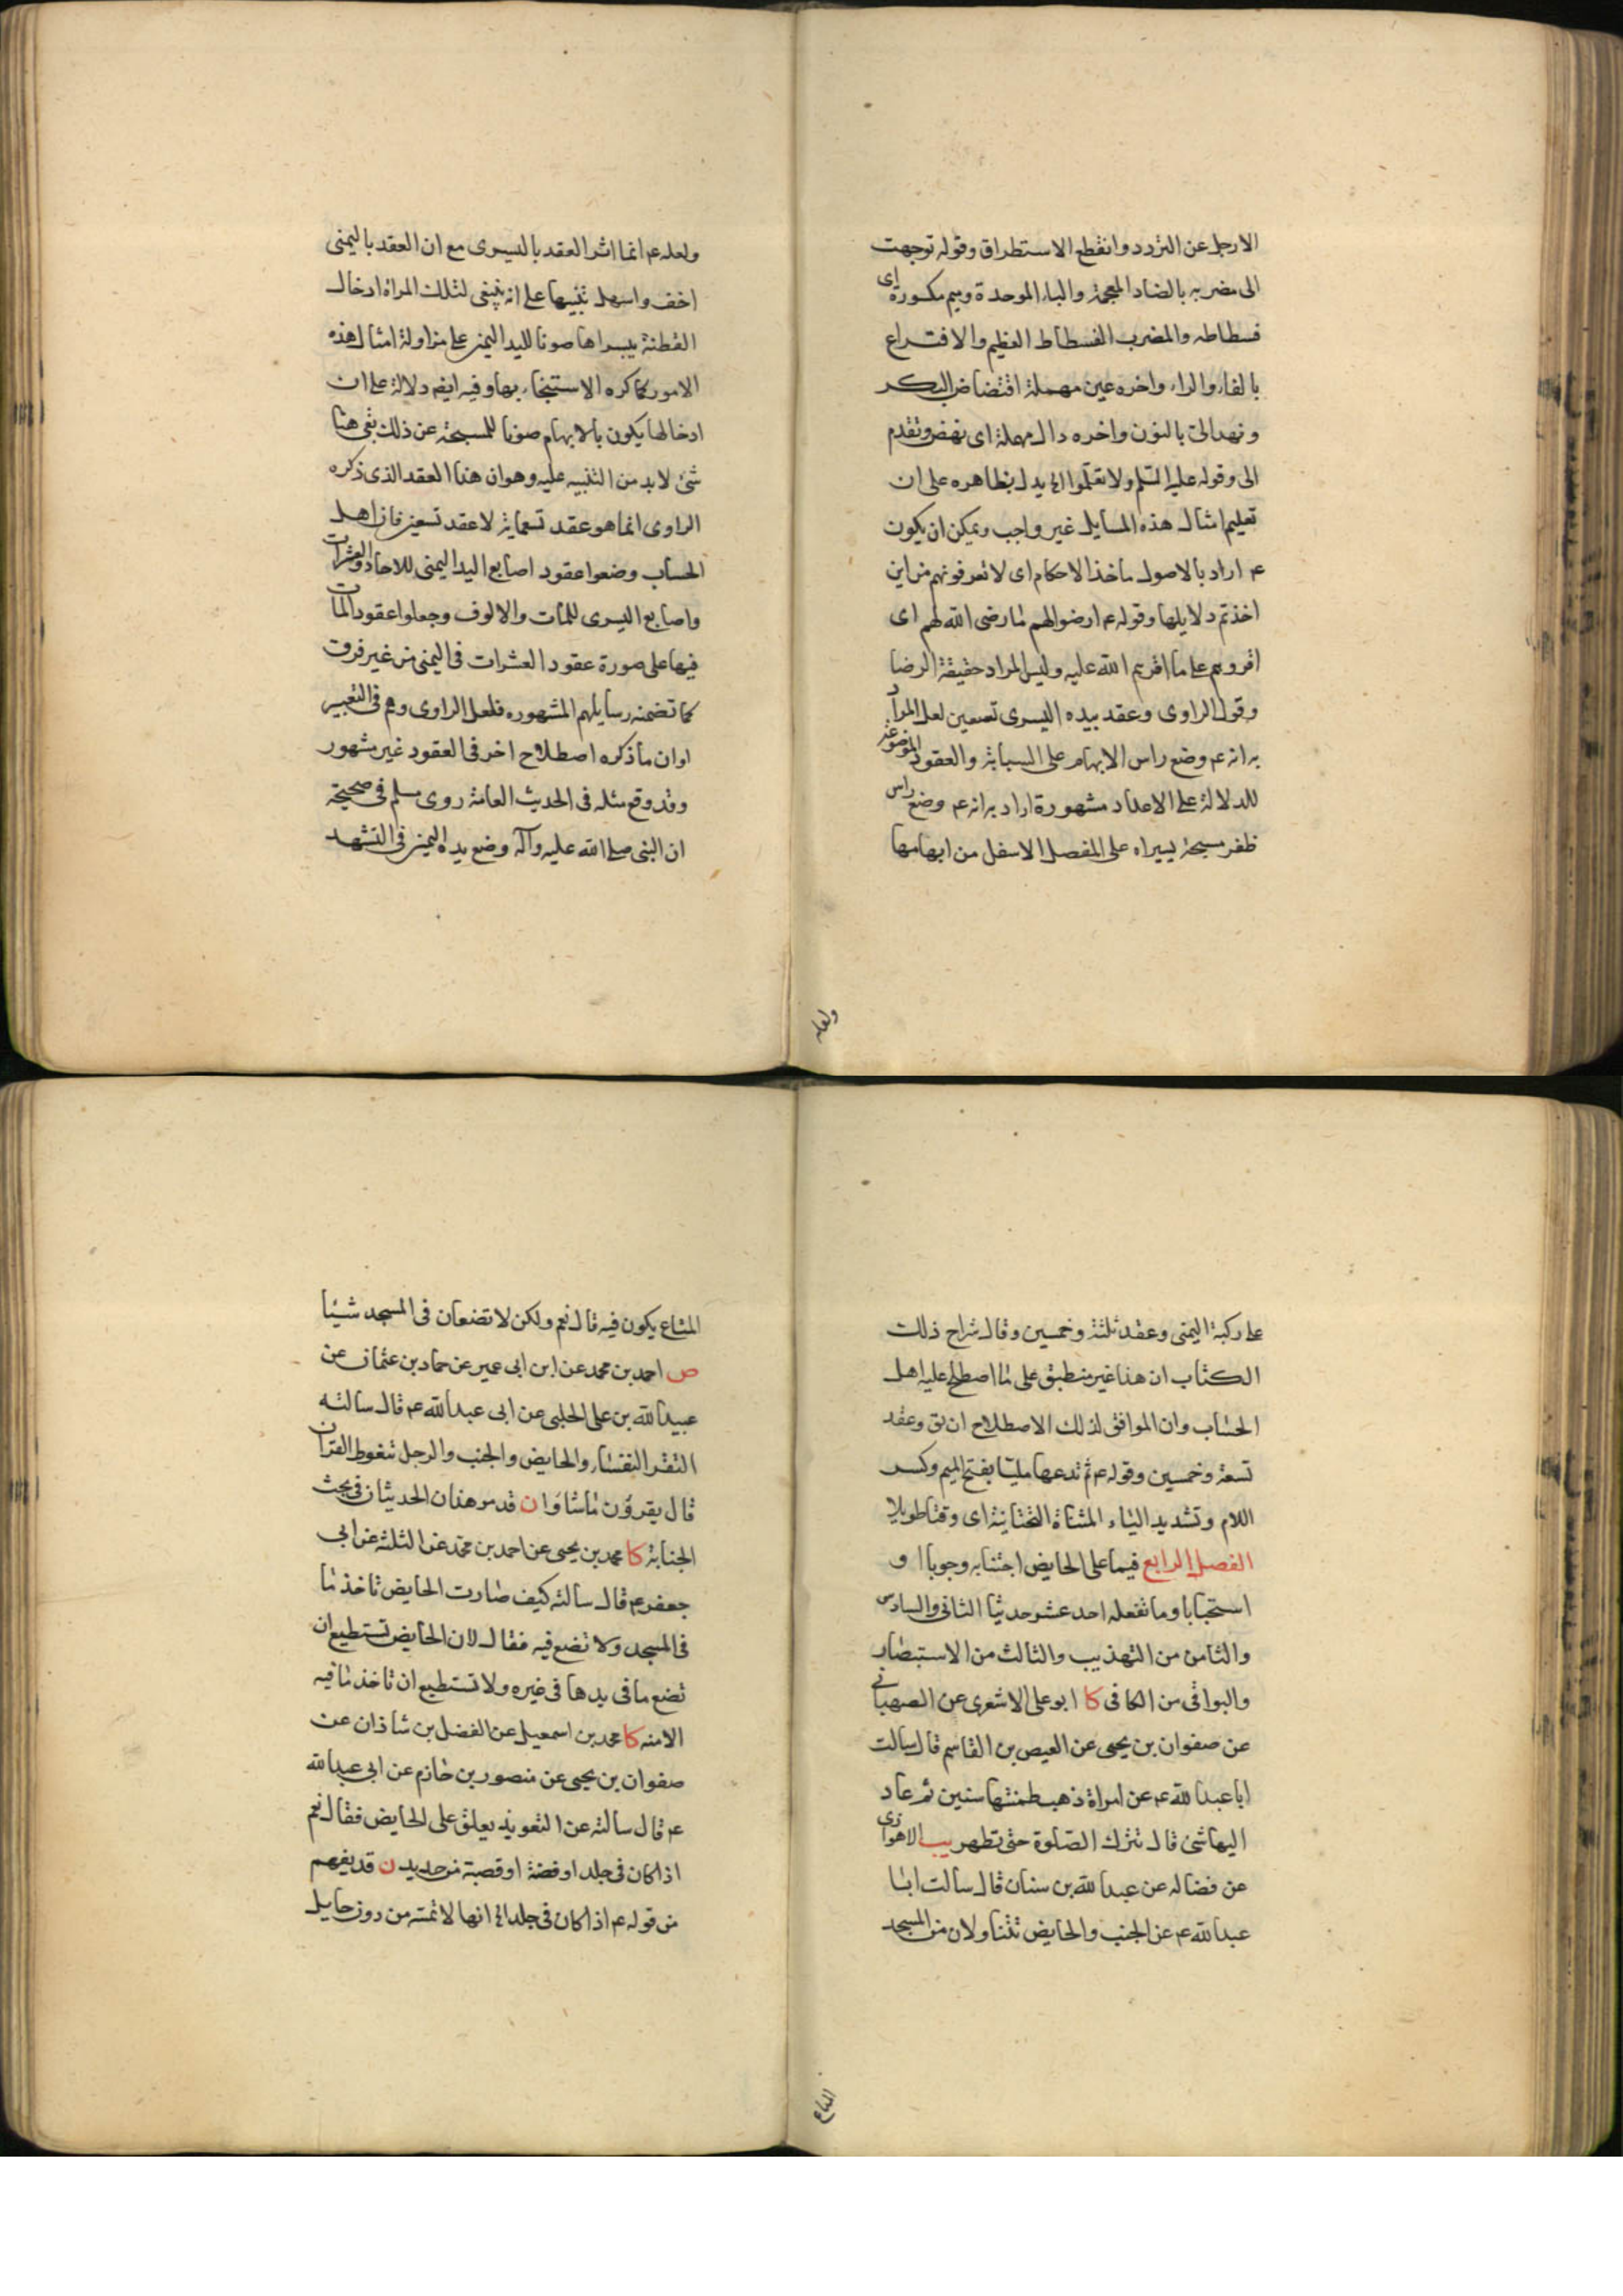 الارجل عن التردد وانقطع الاستطراق وقوله توجهت
الى مضربه بالضاد المعجمة والباء الموحدة وميم مكسورة اى
فسطاطه والمضرب الفسطاط العظيم والافتراع
بالفاء والراء واخره عين مهملة اقتضاض البكر
ونهد الىّ بالنون واخره دال مهملة اى نهض وتقدم
الى وقوله عليه السلم ولا تعلموا الخ يدل بظاهره على ان
تعليم امثال هذه المسايل غير واجب ويمكن ان يكون
ع اراد بالاصول ماخذ الاحكام اى لا تعرفونهم من اين
اخذتم دلايلها وقوله ع ارضوا لهم ما رضى الله لهم اى
اقروهم على ما اقرهم الله عليه وليس المراد حقيقة الرضا
وقول الراوى وعقد بيده اليسرى تسعين لعل المراد
به انه ع وضع راس الابهام على السبابة والعقود الموضوعة
للدلالة على الاعداد مشهورة اراد به انه ع وضع راس
ظفر مسبحة يسراه على المفصل الاسفل من ابهامها
ولعله
ولعله ع انما اثر العقد باليسرى مع ان العقد باليمنى
اخف واسهل تنبيها على انه ينبغى لتلك المراة ادخال
القطنة بيسراها صونا لليد اليمنى على مزاولة امثال هذه
الامور كما كره الاستنجاء بها وفيه ايضا دلالة على ان
ادخالها يكون بالابهام صونا للمسبحة عن ذلك بقى هنا
شئ لابد من التنبيه عليه وهو ان هذا العقد الذى ذكره
الراوى انما هو عقد تسعماية لا عقد تسعين فان اهل
الحساب وضعوا عقود اصابع اليد اليمنى للاحاد والعشرات
واصابع اليسرى للمات والالوف وجعلوا عقود المات
فيها على صورة عقود العشرات فى اليمنى من غير فرق
كما تضمنه رسايلهم المشهوره فلعل الراوى وهم فى التعبير
او ان ما ذكره اصطلاح اخر فى العقود غير مشهور
وقد وقع مثله فى الحديث العامة روى مسلم فى صحيحه
ان النبى صلى الله عليه وآله وضع يده اليمنى فى التشهد
على ركبة اليمنى وعقد ثلثة وخمسين وقال شراح ذلك
الكتاب ان هذا غير منطبق على ما اصطلح عليه اهل
الحساب وان الموافق لذلك الاصطلاح ان يق وعقد
تسعة وخمسين وقوله ع ثم تدعها مليّا بفتح الميم وكسر
اللام وتشديد الياء المثناة التحتانية اى وقتا طويلا
الفصل الرابع فيما على الحايض اجتنابه وجوبا او
استحبابا وما تفعله احد عشر حديثا الثانى والسادس
والثامن من التهذيب والثالث من الاستبصار
والبواقى من الكافى كا ابو على الاشعرى عن الصهبانى
عن صفوان بن يحيى عن العيص بن القاسم قال سالت
ابا عبد الله ع عن امراة ذهب طمثها سنين ثم عاد
اليها شئ قال تترك الصلوة حتى تطهر يب الاهوازى
عن فضاله عن عبد الله بن سنان قال سالت ابا
عبد الله ع عن الجنب والحايض تتناولان من المسجد
المتاع
المتاع يكون فيه قال نعم ولكن لا تضعان فى المسجد شيئا
ص احمد بن محمد عن ابن ابى عمير عن حماد بن عثمان عن
عبيد الله بن على الحلبى عن ابى عبد الله ع قال سالته
اتقر النفساء والحايض والجنب والرجل تغوط القران
قال يقرؤن ما شاؤا ن قد مر هذان الحديثان فى بحث
الجنابة كا محمد بن يحيى عن احمد بن محمد عن الثلثة عن ابى
جعفر ع قال سالته كيف صارت الحايض تاخذ ما
فى المسجد ولا تضع فيه فقال لان الحايض تستطيع ان
تضع ما فى يدها فى غيره ولا تستطيع ان تاخذ ما فيه
الا منه كا محمد بن اسمعيل عن الفضل بن شاذان عن
صفوان بن يحيى عن منصور بن حازم عن ابى عبد الله
ع قال سالته عن التعويذ يعلق على الحايض فقال نعم
اذا كان فى جلد او فضة او قصبة من حديد ن قد يفهم
من قوله ع اذا كان فى جلد الخ انها لا تمسه من دون حايل